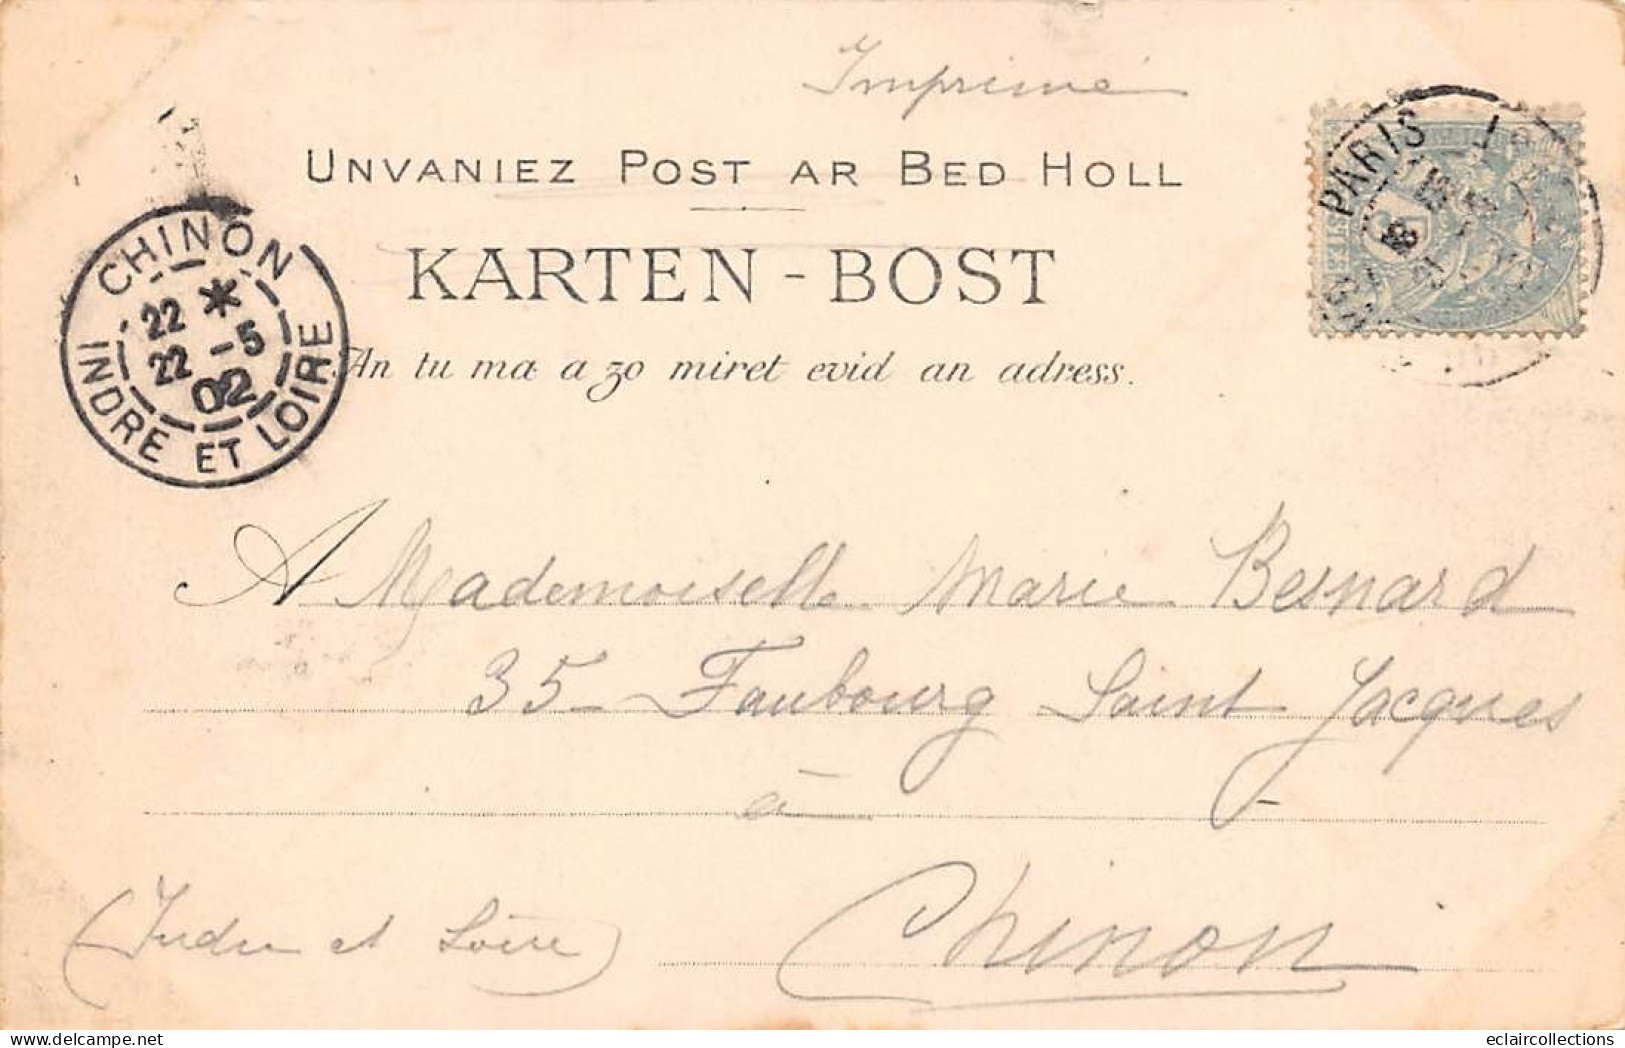 Imprimé
UNVANIEZ POST AR BED HOLL
KARTEN-BOST
An tu ma a zo miret evid an adress.
CHINON
22 *
22 -5
02
INDRE ET LOIRE
PARIS
A Mademoiselle Marie Besnard
35 - Faubourg Saint Jacques
à
Chinon
(Indre et Loire)
eclaircollections